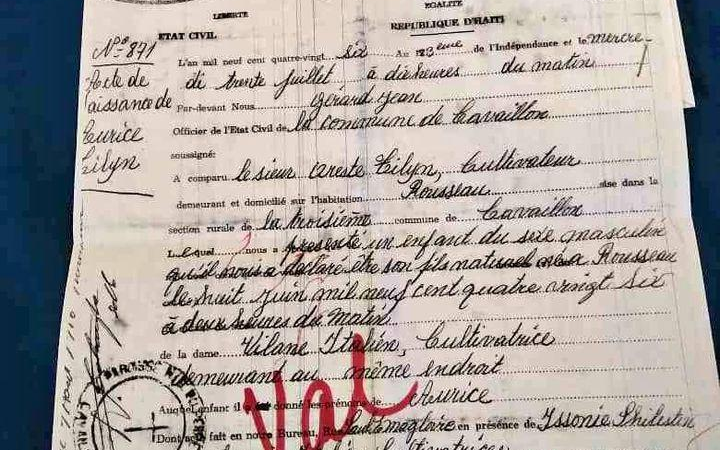 LIBERTÉ
ÉGALITÉ
REPUBLIQUE D'HAITI
ETAT CIVIL
N° 871
Acte de
naissance de
Aurice
Lilyn
L'an mil neuf cent quatre-vingt six Au 183eme de l'Indépendance et le mercre-
di trente juillet à dix heures du matin
Par-devant Nous Gérard Jean
Officier de l'Etat Civil de la commune de Cavaillon
soussigné:
A comparu le sieur Oreste Lilyn, Cultivateur
demeurant et domicilié sur l'habitation Rousseau sise dans la
section rurale de la troisième commune de Cavaillon
Lequel nous a présenté un enfant du sexe masculin
qu'il nous a déclaré être son fils naturel né à Rousseau
le huit juin mil neuf cent quatre vingt six
à deux heures du matin
de la dame Vilane Italien, Cultivatrice
demeurant au même endroit
Auquel enfant il a donné les prénoms de Aurice
Dont acte fait en notre Bureau, Rue en présence de Issonie Philestin
Val